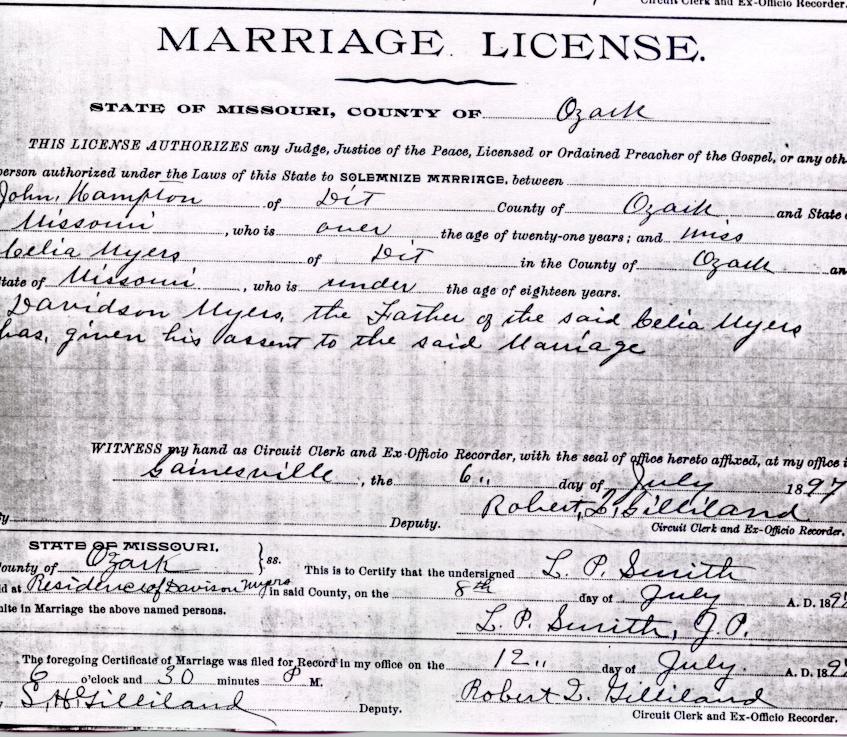 Circuit Clerk and Ex-Officio Recorder.
MARRIAGE LICENSE.
STATE OF MISSOURI, COUNTY OF Ozark
THIS LICENSE AUTHORIZES any Judge, Justice of the Peace, Licensed or Ordained Preacher of the Gospel, or any oth
person authorized under the Laws of this State to SOLEMNIZE MARRIAGE, between
John, Hampton of Dit County of Ozark and State o
Missouri, who is over the age of twenty-one years; and miss
Celia Myers of Dit in the County of Ozark an
State of Missouri, who is under the age of eighteen years.
Davidson Myers, the Father of the said Celia Myers
has, given his assent to the said Marriage
WITNESS my hand as Circuit Clerk and Ex-Officio Recorder, with the seal of office hereto affixed, at my office i
Gainesville, the 6" day of July 1897
Robert Q. Gilliland
y Deputy. Circuit Clerk and Ex-Officio Recorder.
STATE OF MISSOURI,
County of Ozark } ss. This is to Certify that the undersigned L. P. Smith
d at Residence of Davison Myers in said County, on the 8th day of July A. D. 189
nite in Marriage the above named persons. L. P. Smith, J.P.
The foregoing Certificate of Marriage was filed for Record in my office on the 12" day of July A. D. 189
6 o'clock and 30 minutes P M. Robert Q. Gilliland
S. H. Gilliland Deputy. Circuit Clerk and Ex-Officio Recorder.